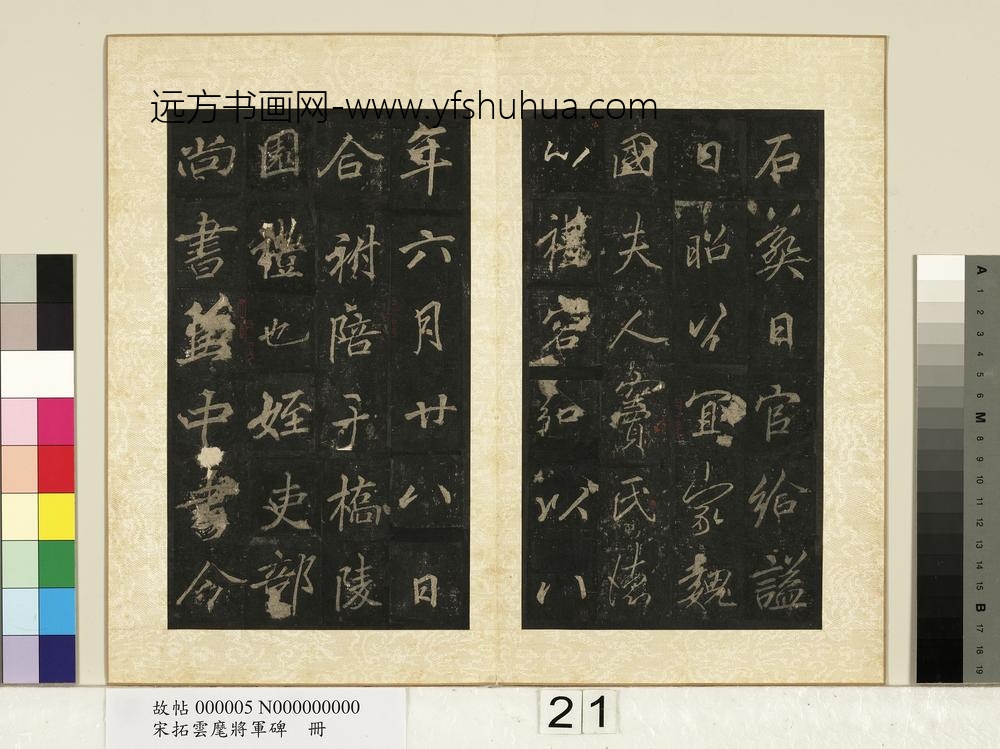 远方书画网-www.yfshuhua.com
石葬日官給謚
日昭公宜家魏
國夫人竇氏德
心禮容和以八
年六月廿八日
合祔陪于橋陵
園禮也姪吏部
尚書兼中書令
故帖 000005 N000000000
宋拓雲麾將軍碑 冊
21
A 1 2 3 4 5 6 M 8 9 10 11 12 13 14 15 B 17 18 19